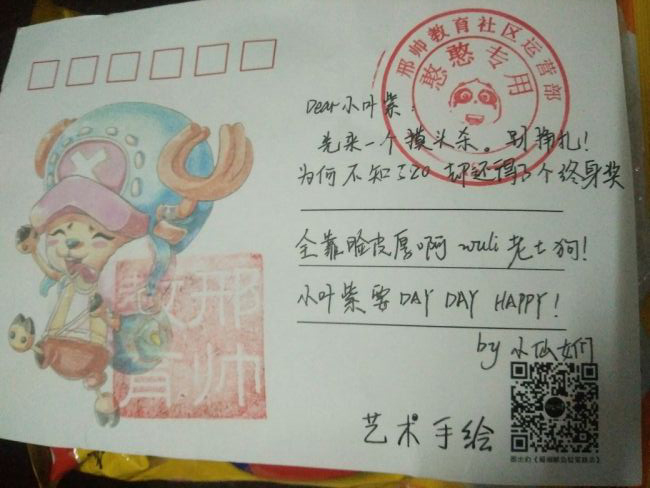 邢帅教育社区运营部
憨憨专用
Dear小叶紫：
先来一个摸头杀。别挣扎！
为何不知520 却还得了个终身奖
全靠脸皮厚啊 wuli老土狗！
小叶紫要 DAY DAY HAPPY！
by 小仙女们
邢帅
教育
艺术手绘